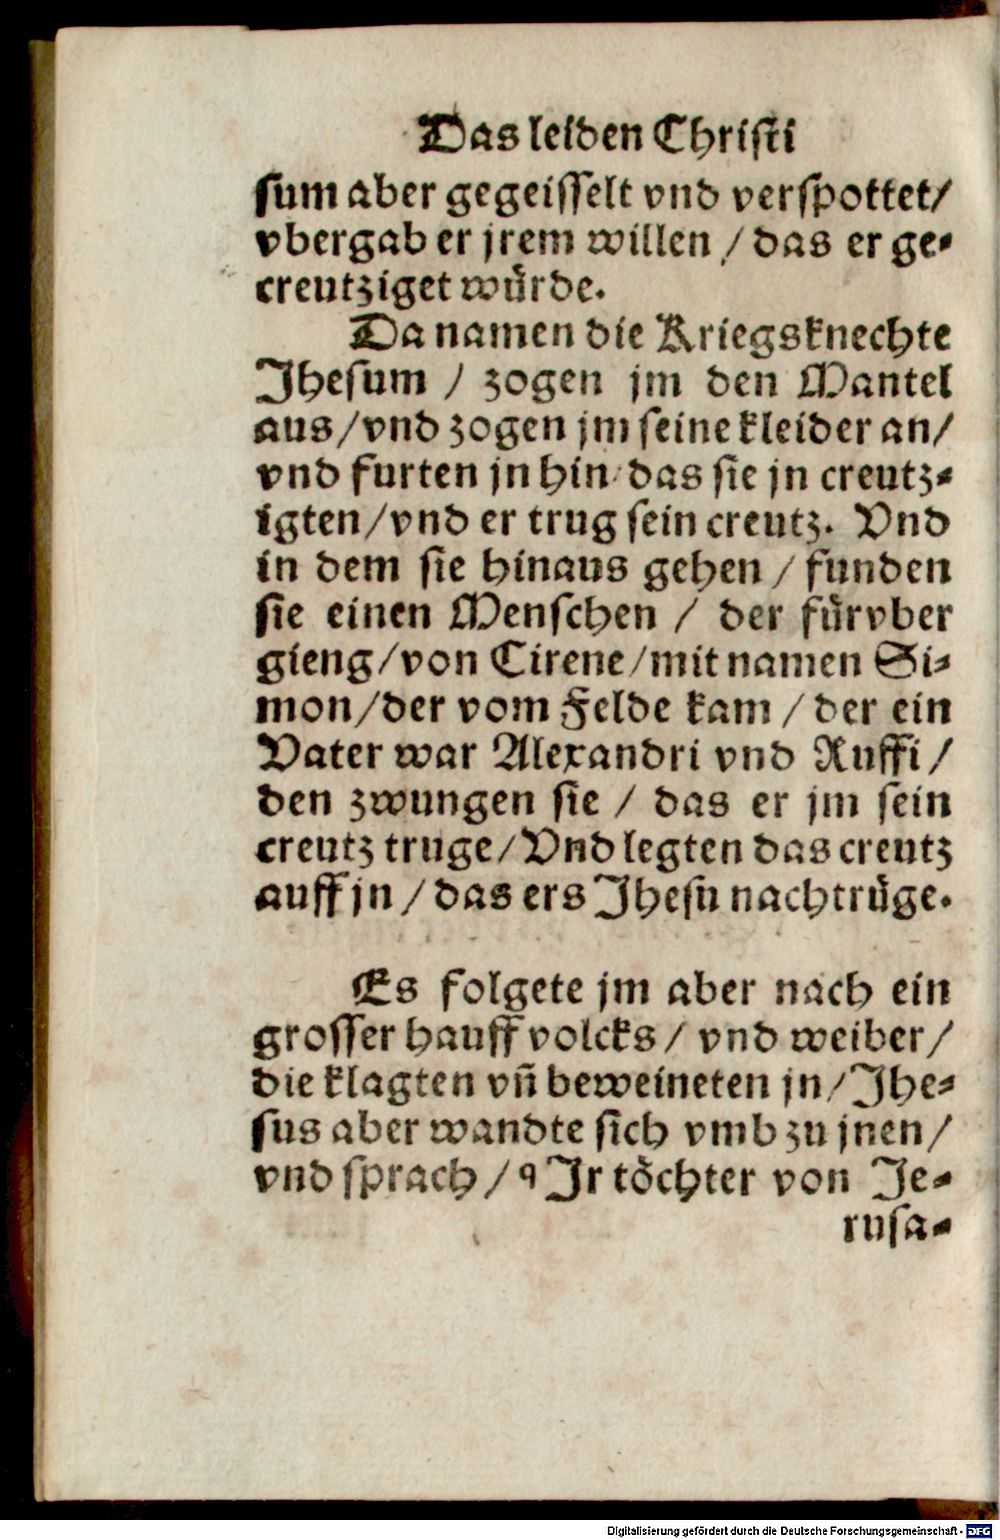 Das leiden Christi
sum aber gegeisselt vnd verspottet/
vbergab er jrem willen / das er ge-
creutziget wuͤrde.
Da namen die Kriegsknechte
Jhesum / zogen jm den Mantel
aus/vnd zogen jm seine kleider an/
vnd furten jn hin/das sie jn creutz-
igten/vnd er trug sein creutz. Vnd
in dem sie hinaus gehen / funden
sie einen Menschen / der fuͤrvber
gieng/von Cirene/mit namen Si-
mon/der vom Felde kam / der ein
Vater war Alexandri vnd Ruffi /
den zwungen sie / das er jm sein
creutz truge/Vnd legten das creutz
auff jn / das ers Jhesu nachtruͤge.
Es folgete jm aber nach ein
grosser hauff volcks / vnd weiber /
die klagten vñ beweineten jn/Jhe-
sus aber wandte sich vmb zu jnen /
vnd sprach / ꝗ Jr toͤchter von Je-
rusa-
Digitalisierung gefördert durch die Deutsche Forschungsgemeinschaft - DFG